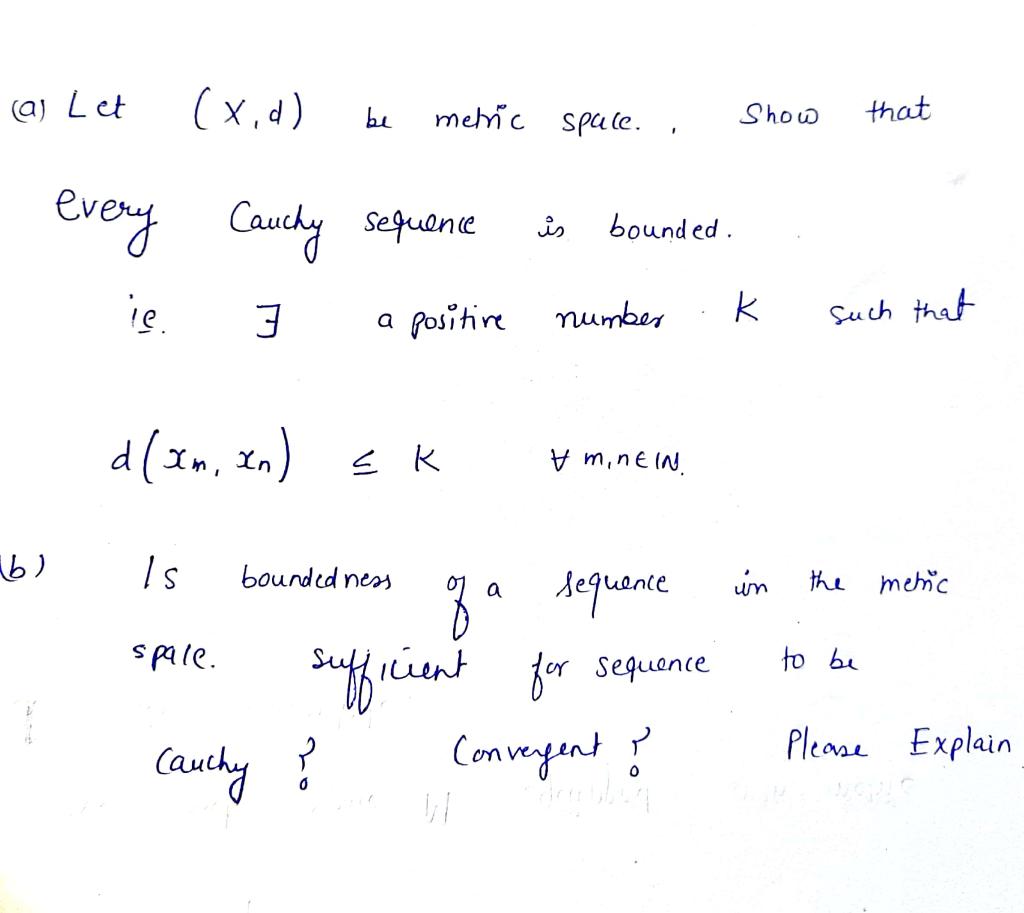 (a) Let (X,d) be metric space. , Show that
every Cauchy sequence is bounded.
ie. ∃ a positive number K such that
d(xm, xn) ≤ K ∀ m,n ∈ ℕ.
(b) Is boundedness of a sequence in the metric
space. sufficient for sequence to be
Cauchy ? Convergent ? Please Explain